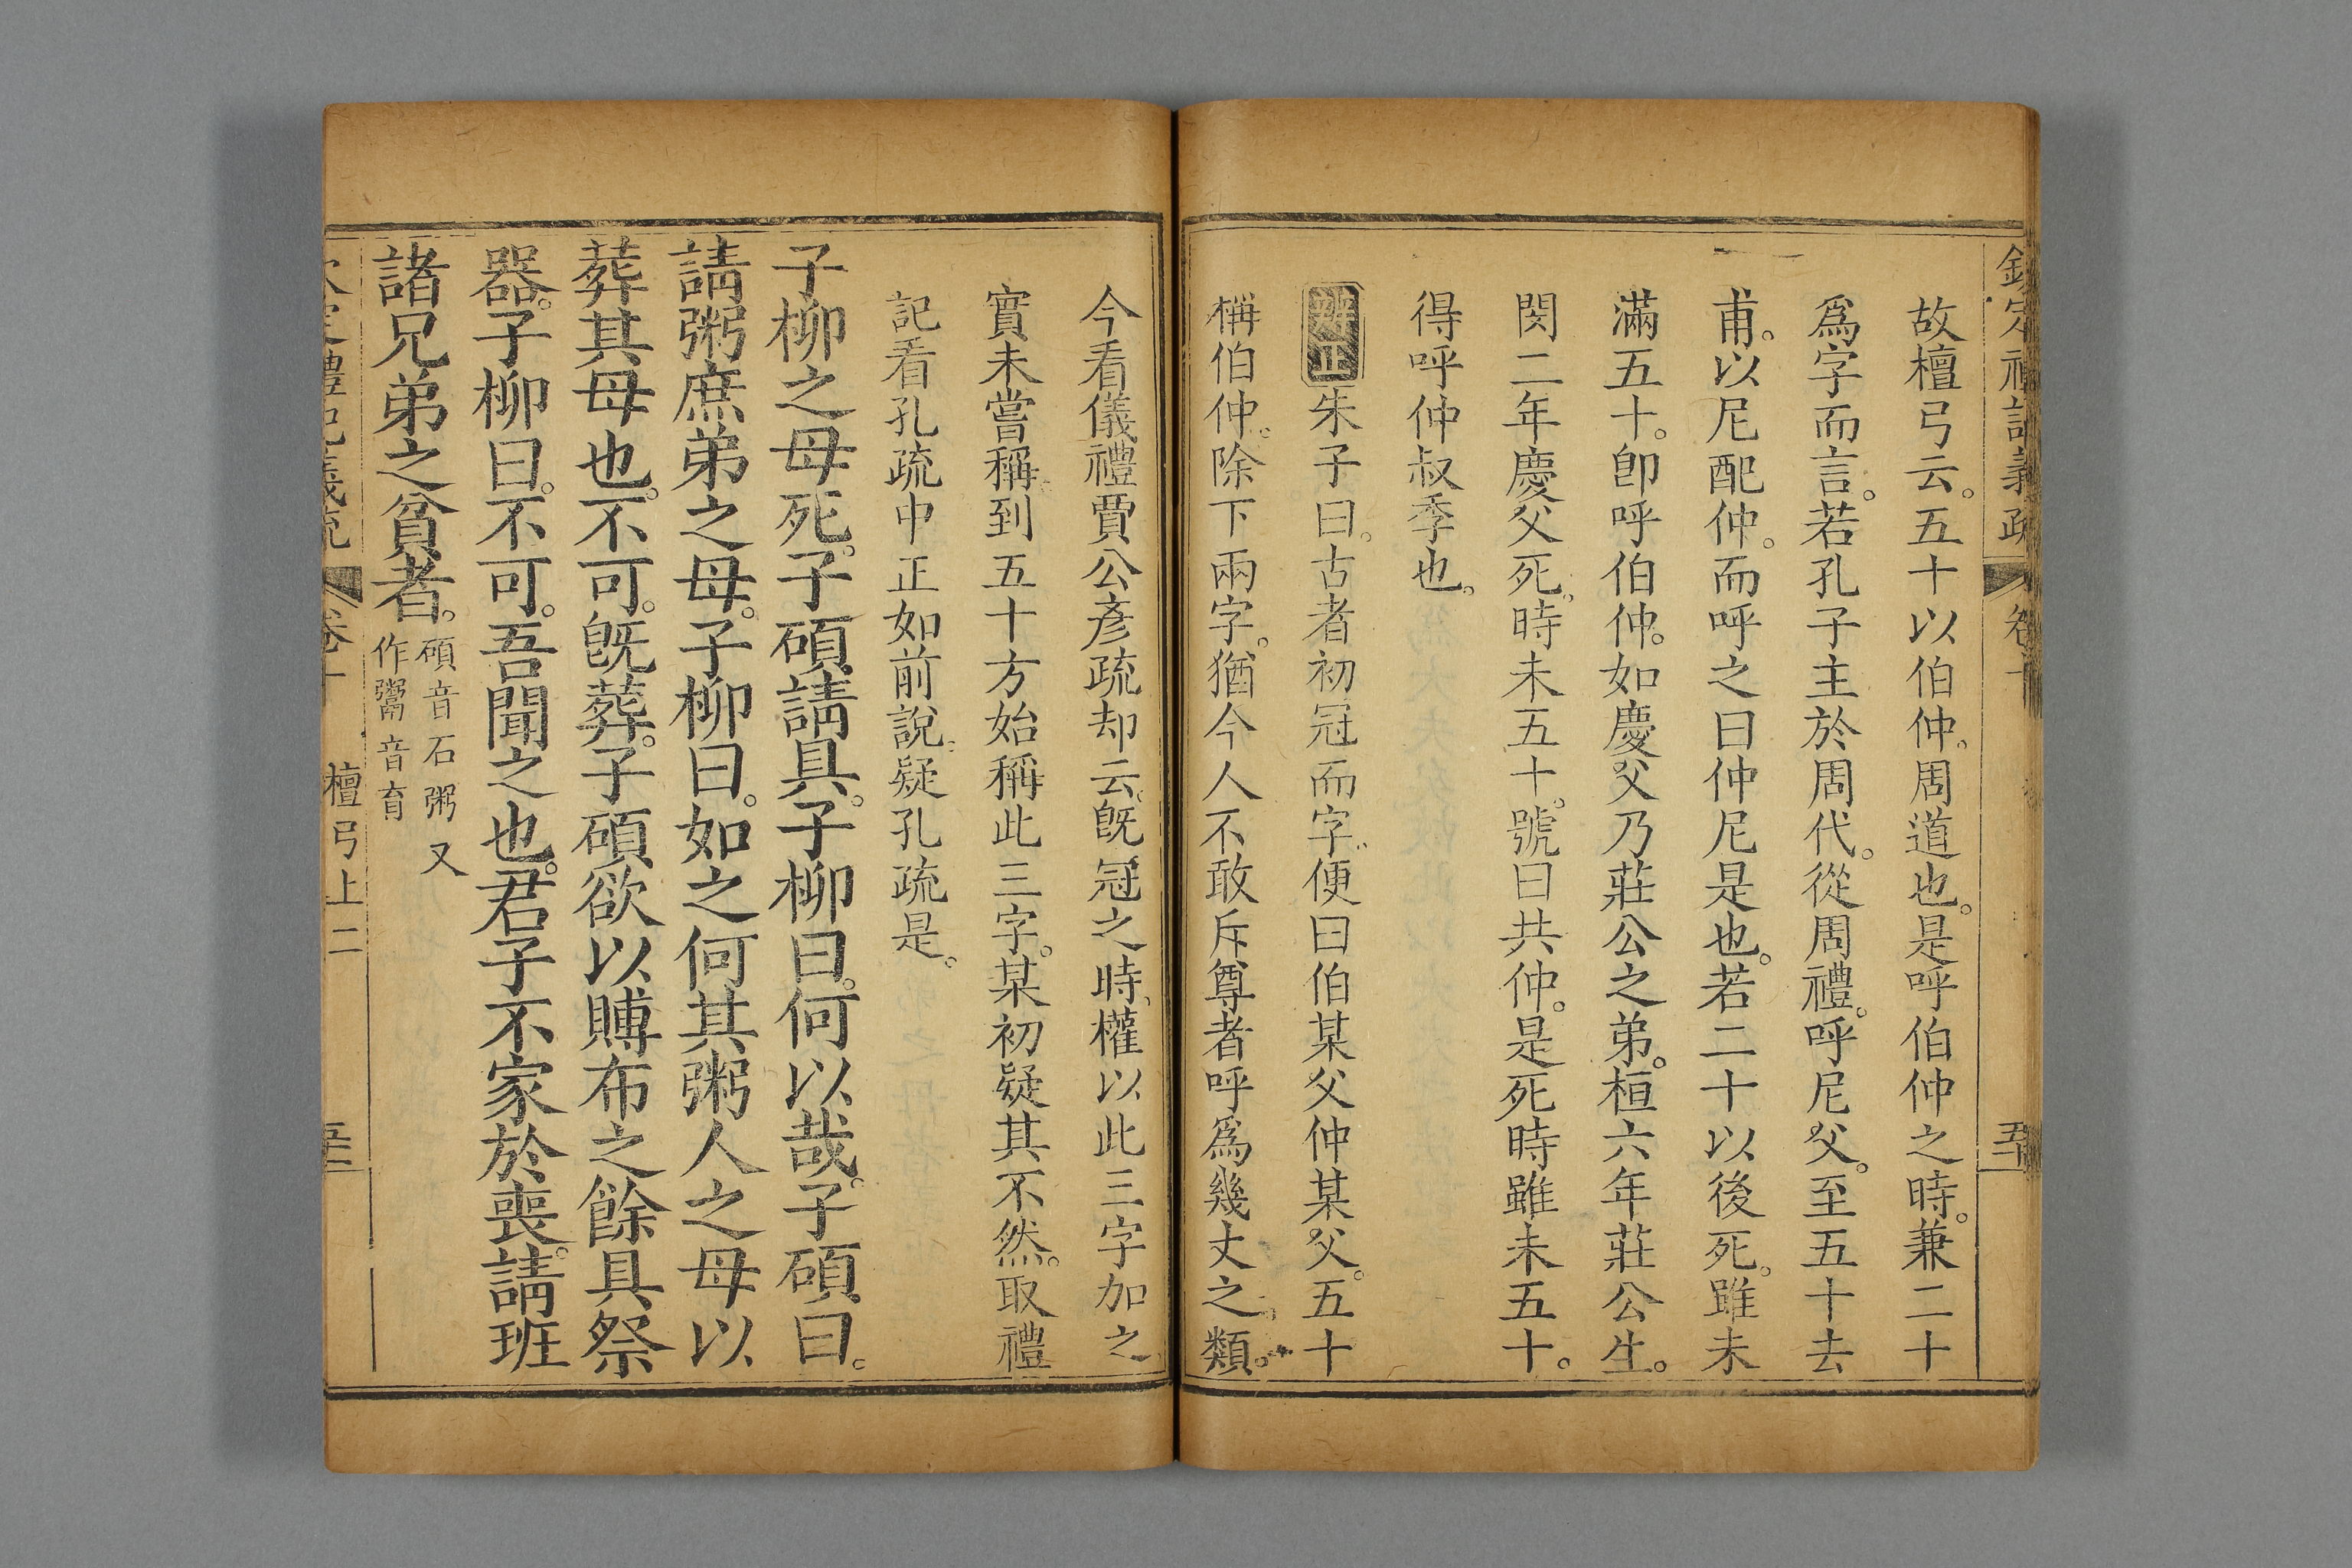 欽定禮記義疏 卷十 五十一
故檀弓云。五十以伯仲。周道也。是呼伯仲之時。兼二十
爲字而言。若孔子主於周代。從周禮。呼尼父。至五十去
甫。以尼配仲。而呼之曰仲尼是也。若二十以後死。雖未
滿五十。卽呼伯仲。如慶父乃莊公之弟。桓六年莊公生。
閔二年慶父死。時未五十。號曰共仲。是死時雖未五十。
得呼仲叔季也。
辨正朱子曰。古者初冠而字。便曰伯某父仲某父。五十
稱伯仲。除下兩字。猶今人不敢斥尊者呼爲幾丈之類。
今看儀禮賈公彥疏却云。旣冠之時、權以此三字加之
實未嘗稱。到五十方始稱此三字。某初疑其不然。取禮
記看孔疏中正如前說。疑孔疏是。
子柳之母死。子碩請具。子柳曰。何以哉。子碩曰。
請粥庶弟之母。子柳曰。如之何其粥人之母以
葬其母也。不可。旣葬。子碩欲以賻布之餘具祭
器。子柳曰。不可。吾聞之也。君子不家於喪。請班
諸兄弟之貧者。碩音石粥又
作鬻音育
欽定禮記義疏 卷十 檀弓上二